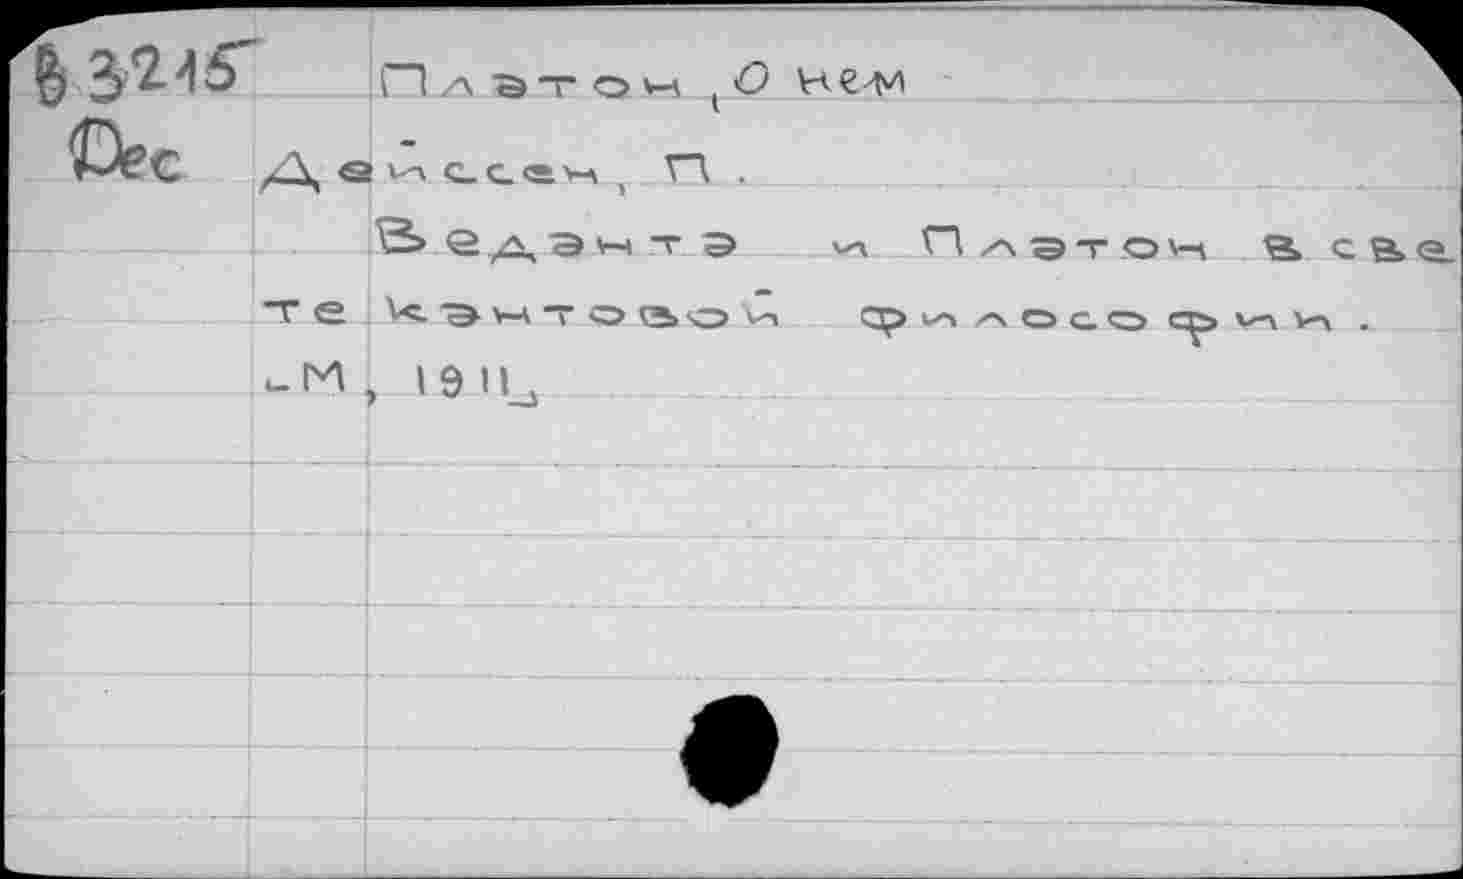 B3215 Платон, О нем
Dec Дейссен, П.
Веданта и Платон в све
те кантовой философии.
М, 1911